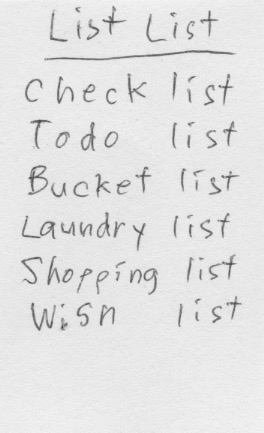 List List
Check list
Todo list
Bucket list
Laundry list
Shopping list
Wish list